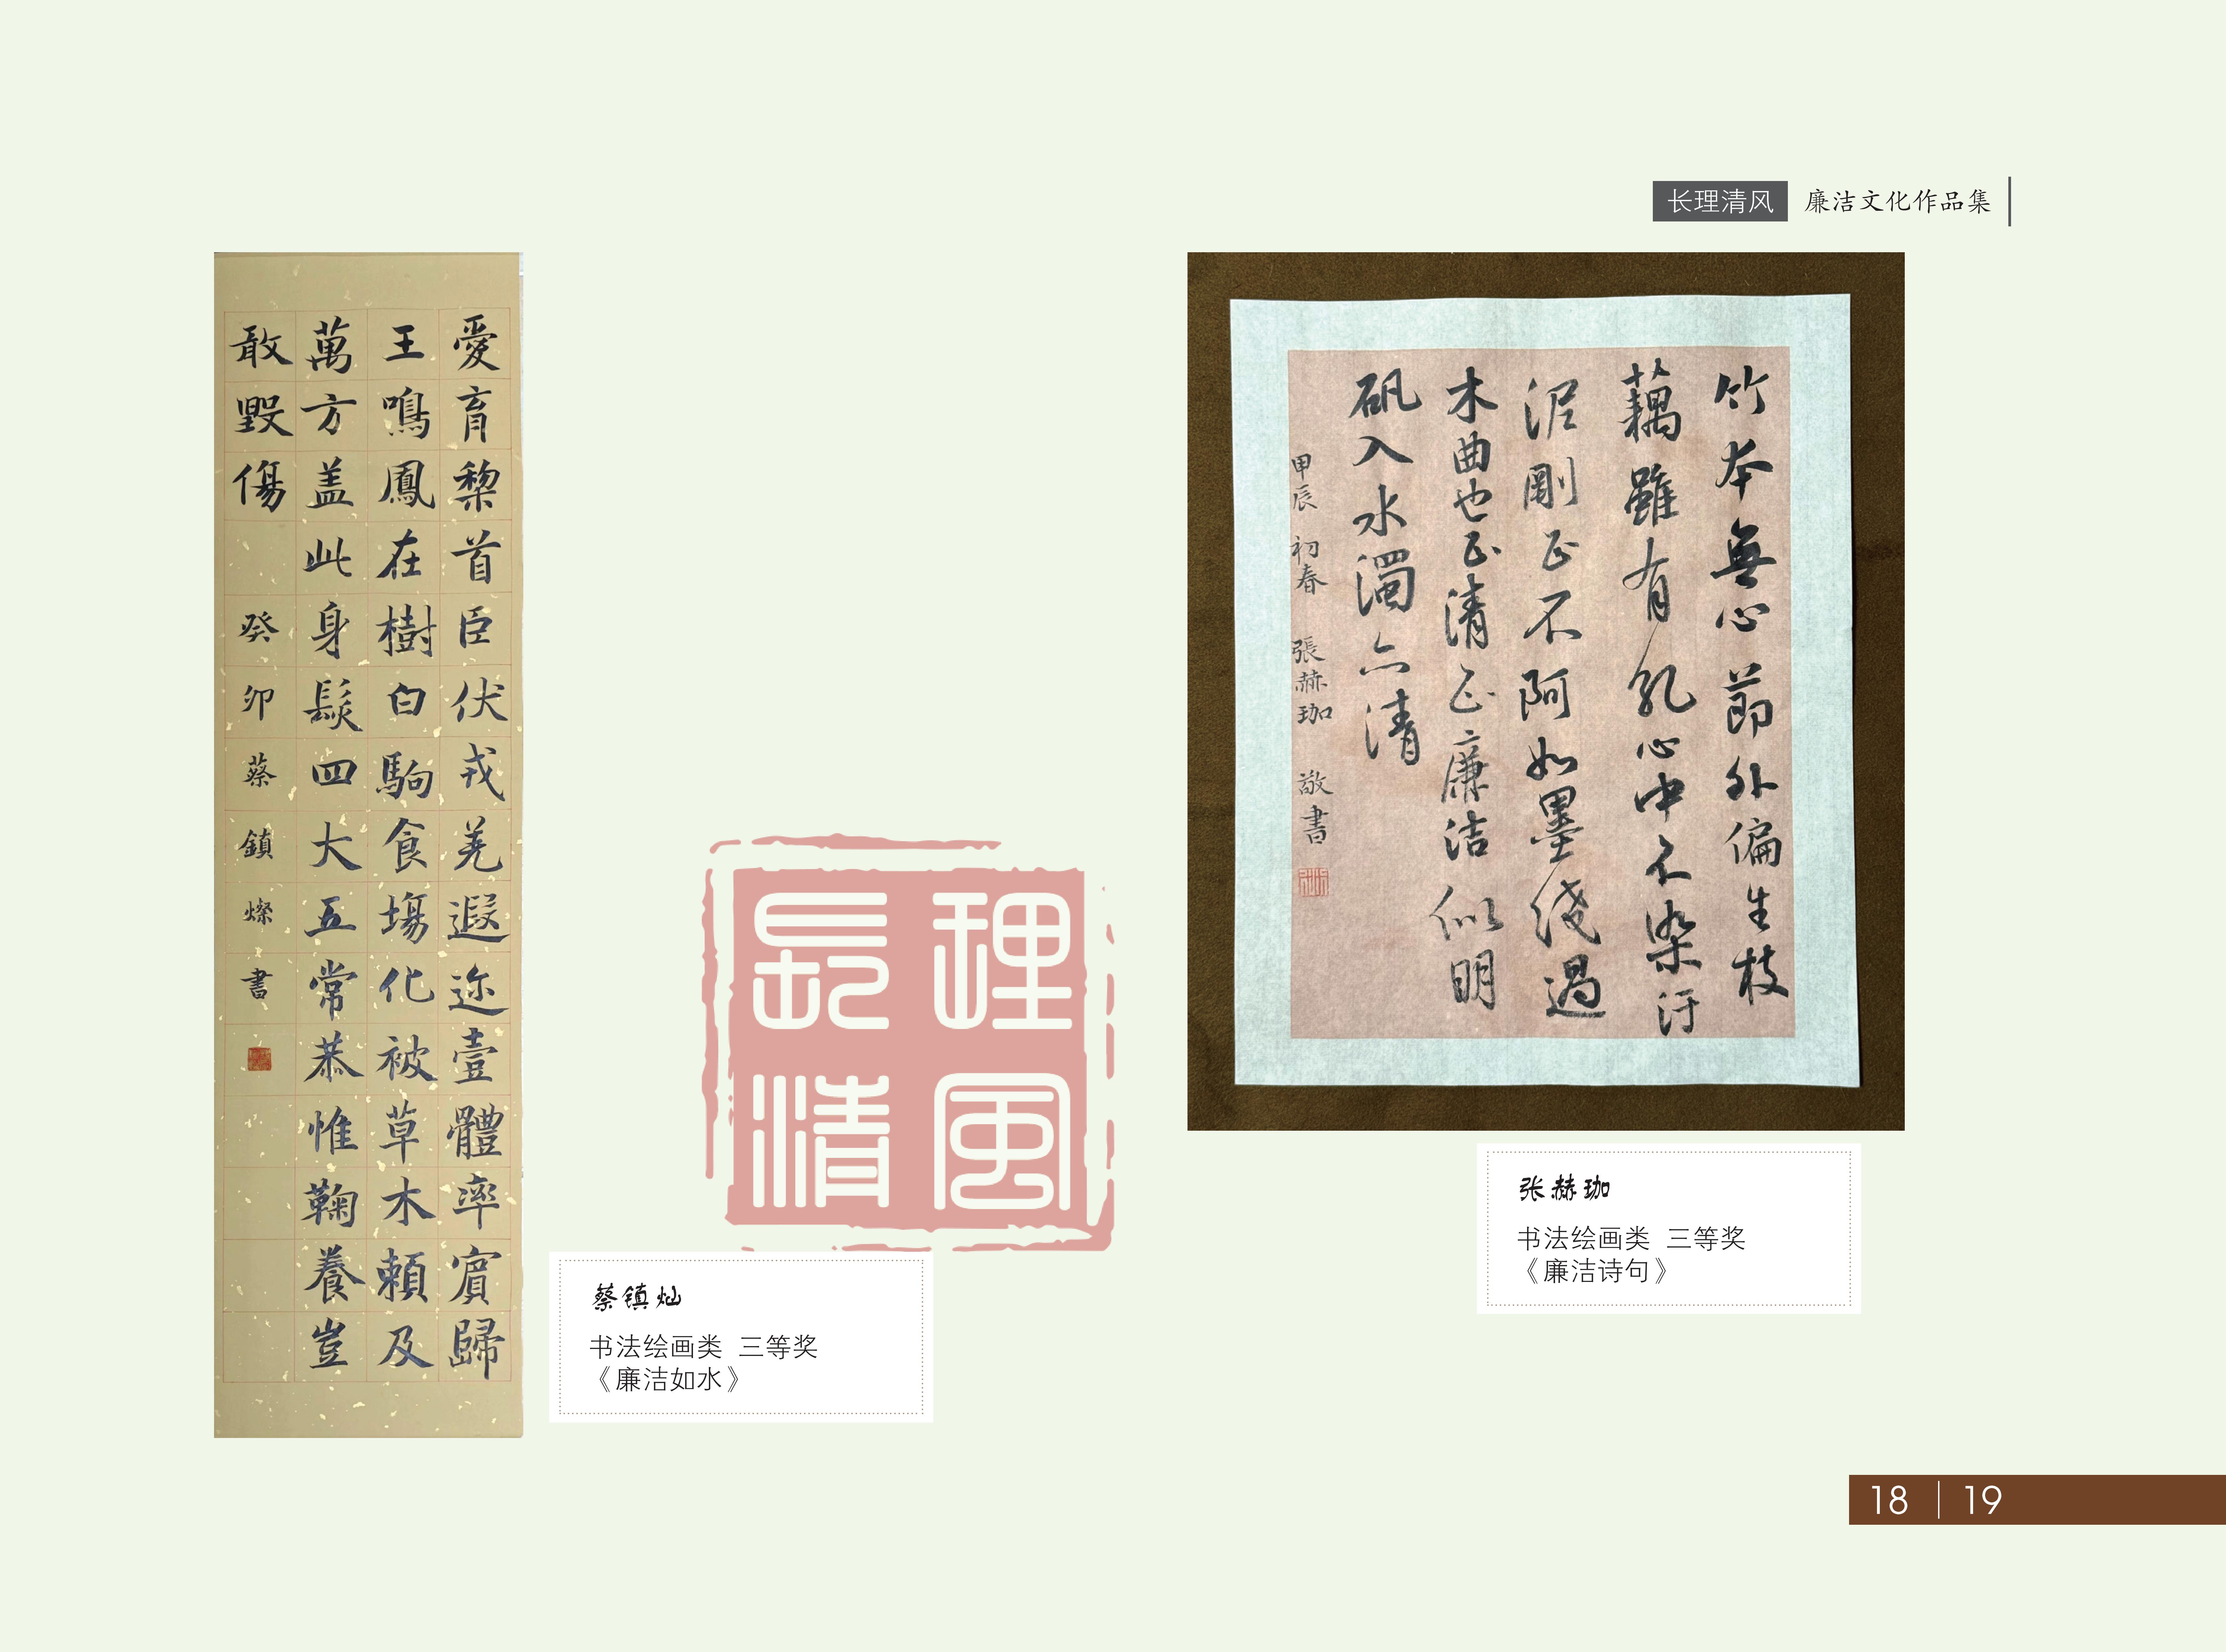 长理清风 廉洁文化作品集
愛育黎首臣伏戎羌遐迩壹體率賓歸
王鳴鳳在樹白駒食塲化被草木賴及
萬方盖此身髮四大五常恭惟鞠養豈
敢毀傷 癸卯蔡鎮燦書
長理
清風
蔡镇灿
书法绘画类 三等奖
《廉洁如水》
竹本無心節外偏生枝
藕雖有孔心中不染汙
泥剛正不阿如墨綫過
木曲也正清正廉洁似明
矾入水濁亦清
甲辰 初春 張赫珈 敬書
张赫珈
书法绘画类 三等奖
《廉洁诗句》
18 | 19